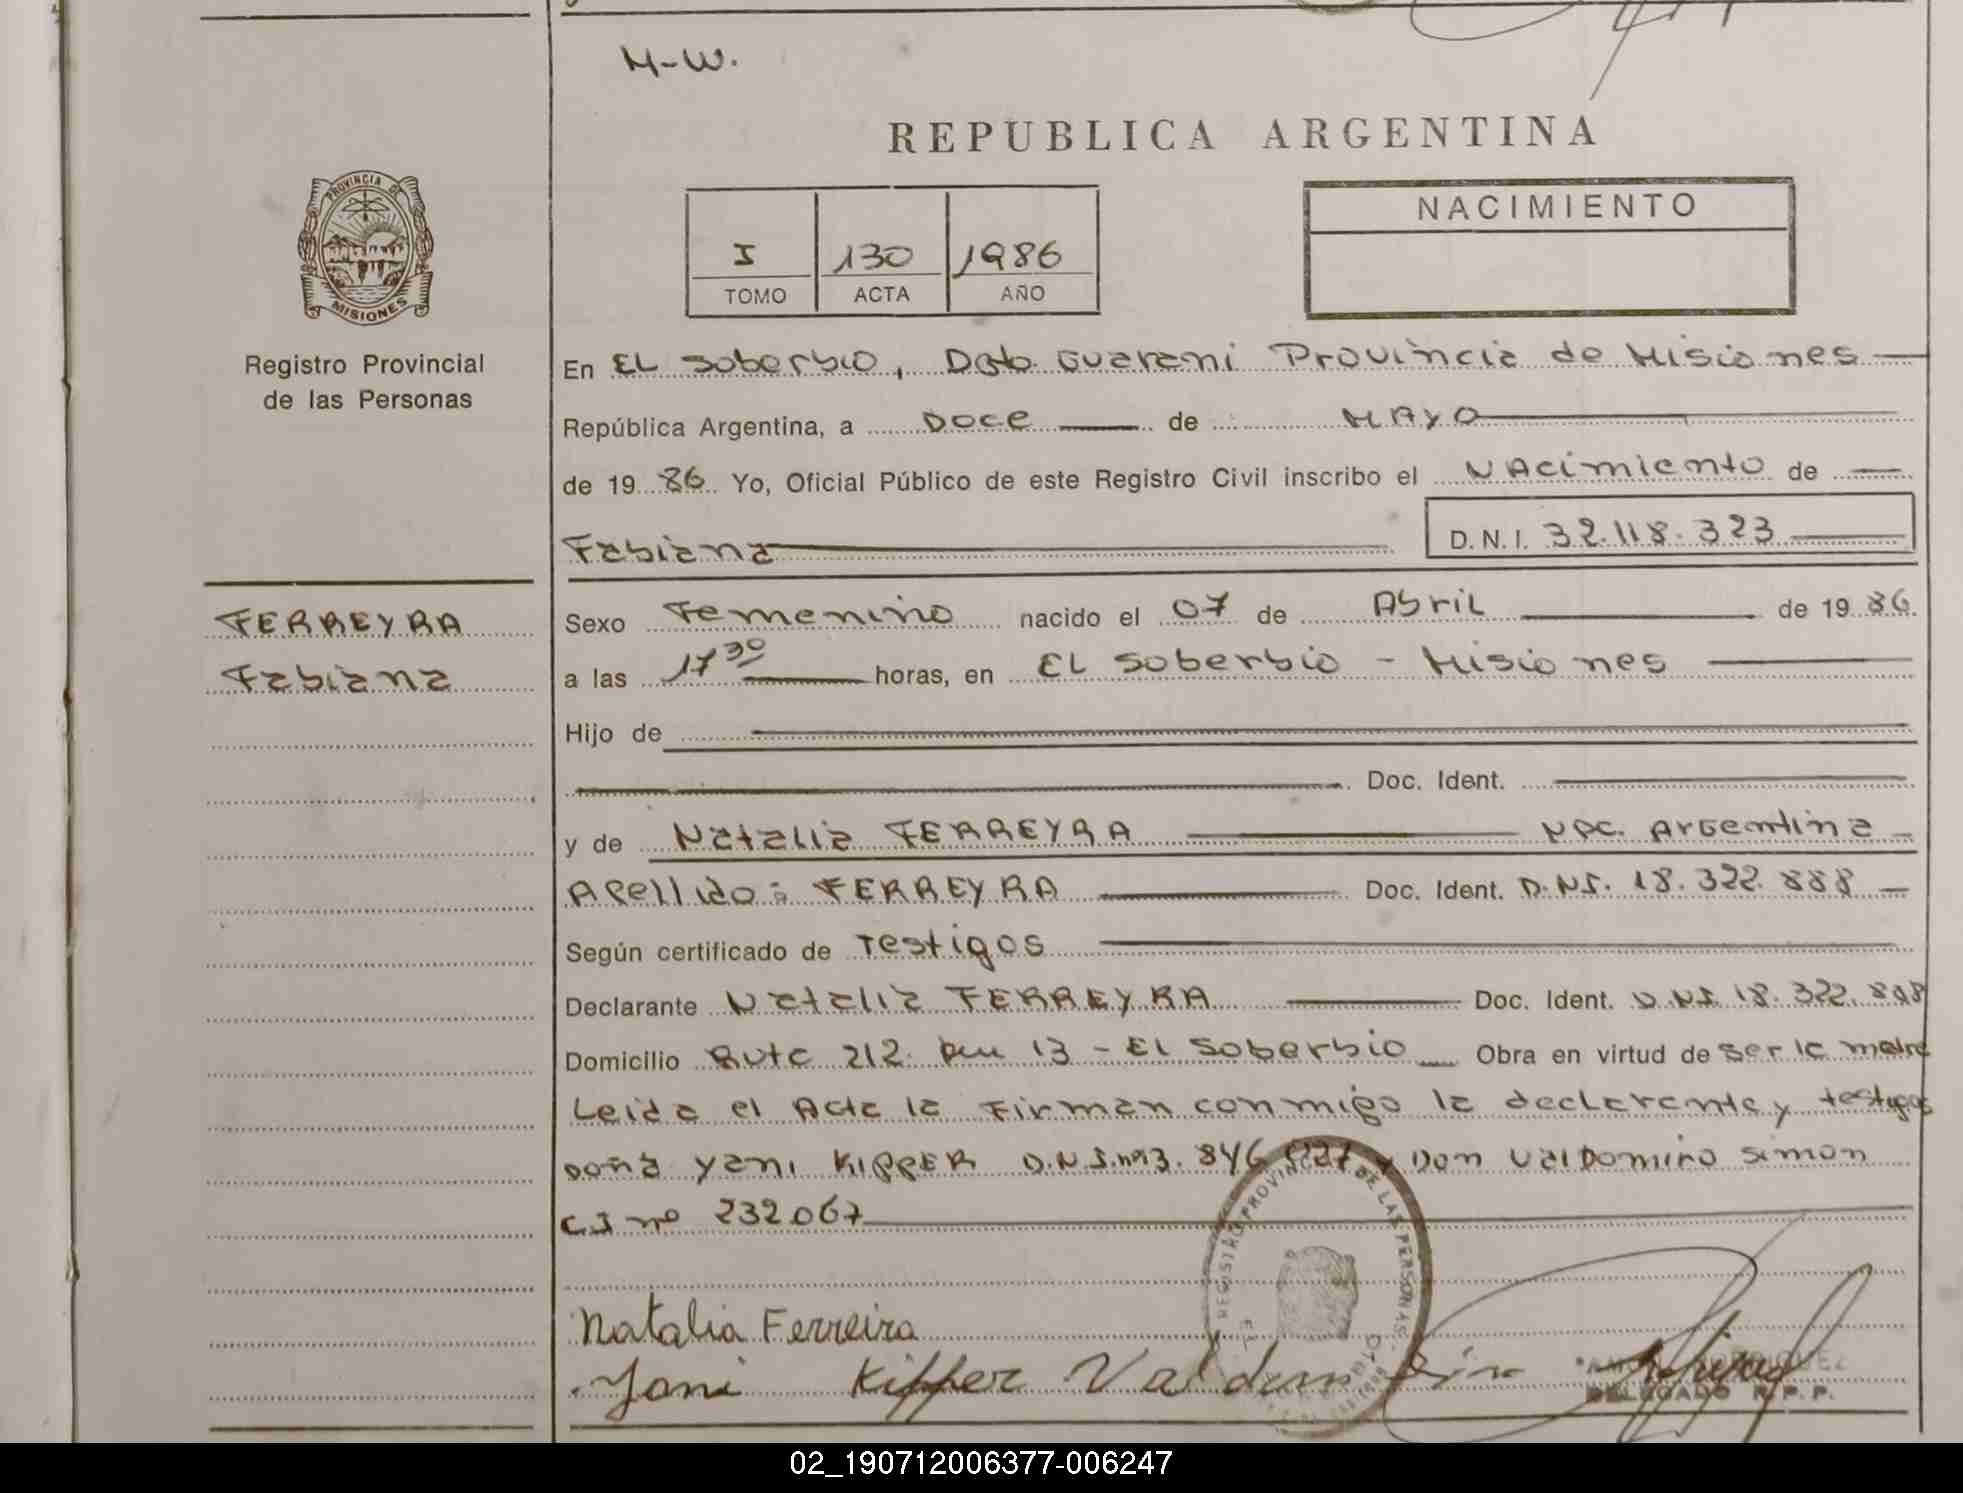 M-W.
REPUBLICA ARGENTINA
PROVINCIA DE
MISIONES
I 130 1986
TOMO ACTA AÑO
NACIMIENTO
Registro Provincial
de las Personas
En EL Soberbio, Dpto Guarani Provincia de Misiones
República Argentina, a Doce de MAYO
de 19 86 Yo, Oficial Público de este Registro Civil inscribo el NAcimiento de
Fabiana D.N.I. 32.118.323
FERREYRA
Fabiana
Sexo Femenino nacido el 07 de Abril de 19 86.
a las 17 30 horas, en EL Soberbio - Misiones
Hijo de
Doc. Ident.
y de Natalia FERREYRA NAC. Argentina
Apellido: FERREYRA Doc. Ident. D.N.I. 18.322.888
Según certificado de Testigos
Declarante Natalia FERREYRA Doc. Ident. D.N.I. 18.322.888
Domicilio Ruta 212 km 13 - El Soberbio Obra en virtud de ser la madre
Leida el Acta la Firman conmigo la declarante y testigos
Doña Yani KIPPER D.N.I. nº 13.846 y Don Valdomiro Simon
CI nº 232067
REGISTRO PROVINCIAL DE LAS PERSONAS
Natalia Ferreira
Yani Kipper Valdomiro
DELEGADO R.P.P.
02_190712006377-006247